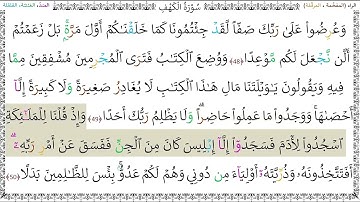 سُورَةُ الْكَهْفِ
وَعُرِضُوا۟ عَلَىٰ رَبِّكَ صَفًّا لَّقَدْ جِئْتُمُونَا كَمَا خَلَقْنَـٰكُمْ أَوَّلَ مَرَّةٍۭ بَلْ زَعَمْتُمْ
أَلَّن نَّجْعَلَ لَكُم مَّوْعِدًا (48) وَوُضِعَ الْكِتَـٰبُ فَتَرَى الْمُجْرِمِينَ مُشْفِقِينَ مِمَّا
فِيهِ وَيَقُولُونَ يَـٰوَيْلَتَنَا مَالِ هَـٰذَا الْكِتَـٰبِ لَا يُغَادِرُ صَغِيرَةً وَلَا كَبِيرَةً إِلَّآ
أَحْصَىٰهَا وَوَجَدُوا۟ مَا عَمِلُوا۟ حَاضِرًا ۗ وَلَا يَظْلِمُ رَبُّكَ أَحَدًا (49) وَإِذْ قُلْنَا لِلْمَلَـٰٓئِكَةِ
اسْجُدُوا۟ لِـَٔادَمَ فَسَجَدُوٓا۟ إِلَّآ إِبْلِيسَ كَانَ مِنَ الْجِنِّ فَفَسَقَ عَنْ أَمْرِ رَبِّهِۦٓ ۗ
أَفَتَتَّخِذُونَهُۥ وَذُرِّيَّتَهُۥٓ أَوْلِيَآءَ مِن دُونِى وَهُمْ لَكُمْ عَدُوٌّۢ ۚ بِئْسَ لِلظَّـٰلِمِينَ بَدَلًا (50)